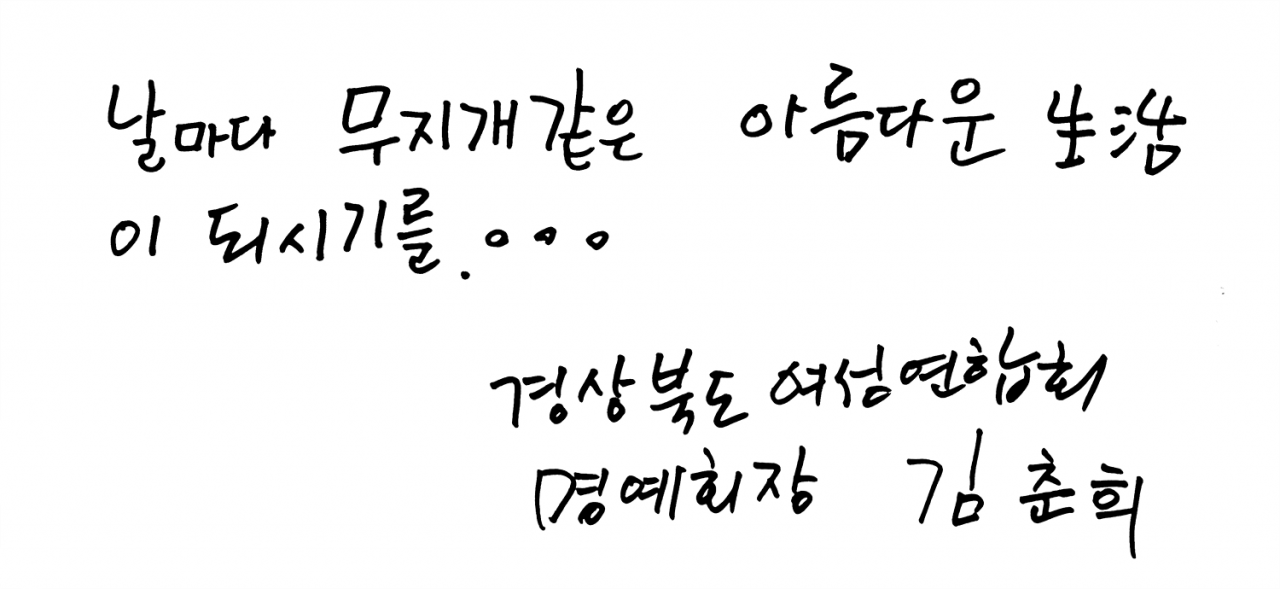 날마다 무지개같은 아름다운 生活
이 되시기를....
경상북도 여성연합회
명예회장 김춘희